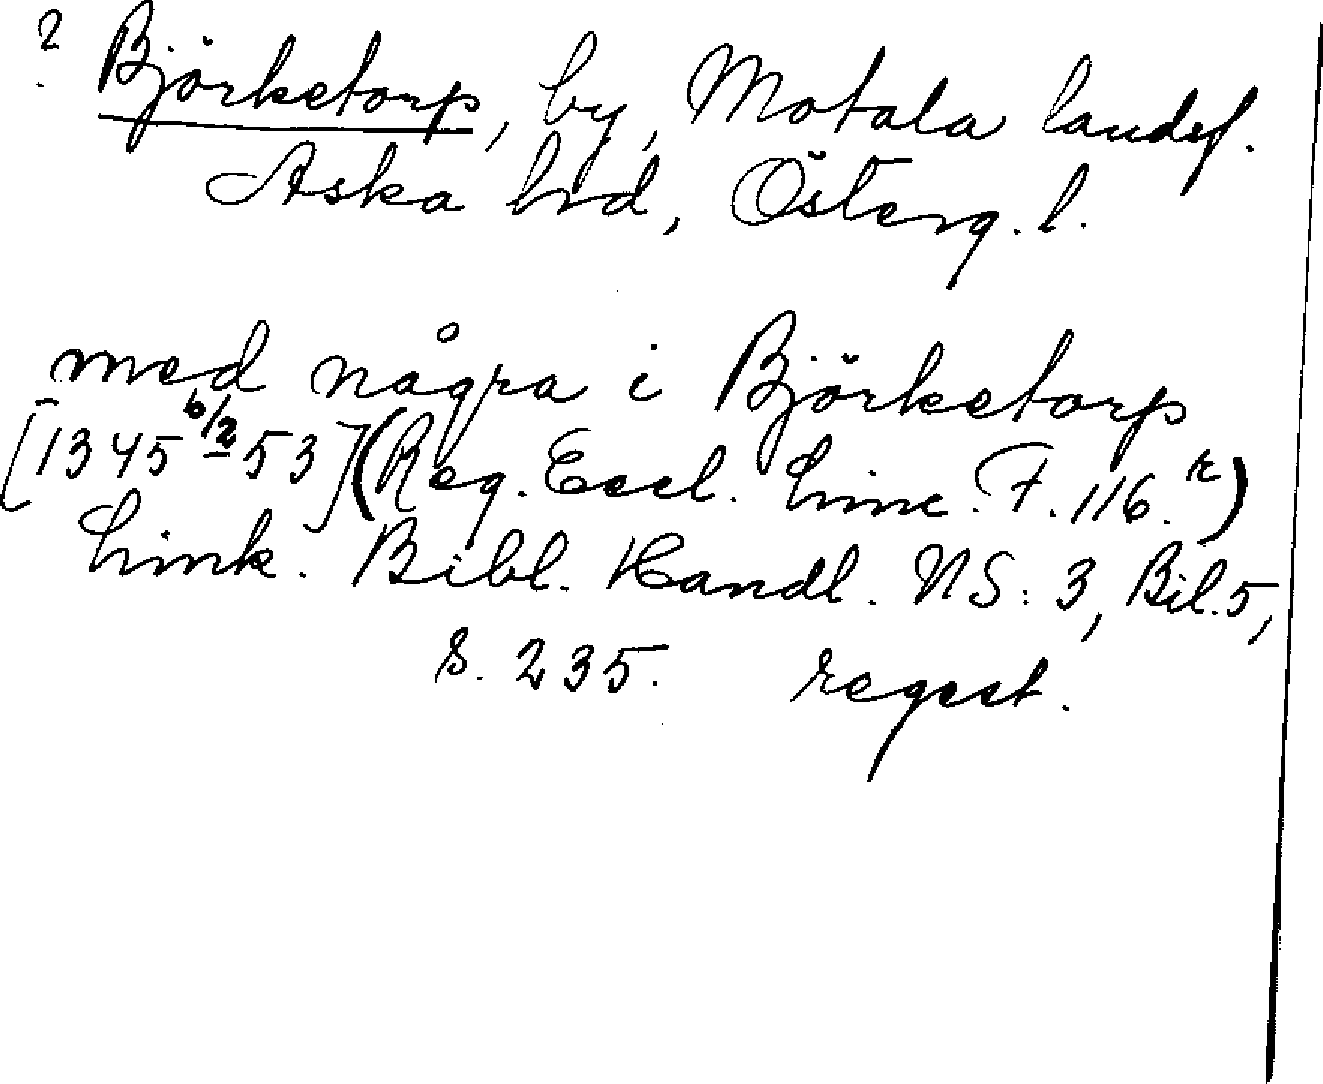 ? Björketorp, by, Motala landsf.
Aska hd, Österg. l.
med några i Björketorp
[1345 6/2 53] (Reg. Eccl. Linc. F. 116. r)
Link. Bibl. Handl. NS: 3, Bil. 5,
s. 235. regest.